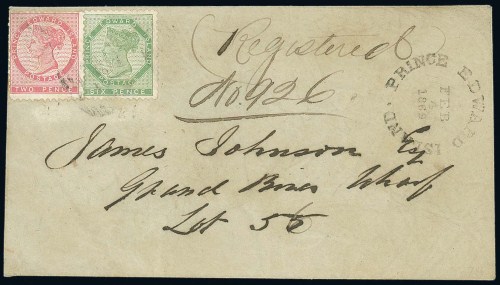 PRINCE EDWARD ISLAND
POSTAGE
TWO PENCE
PRINCE EDWARD ISLAND
POSTAGE
SIX PENCE
Registered
No. 926.
PRINCE EDWARD ISLAND
FEB
1869
James Johnson Esq
Grand River Wharf
Lot 56